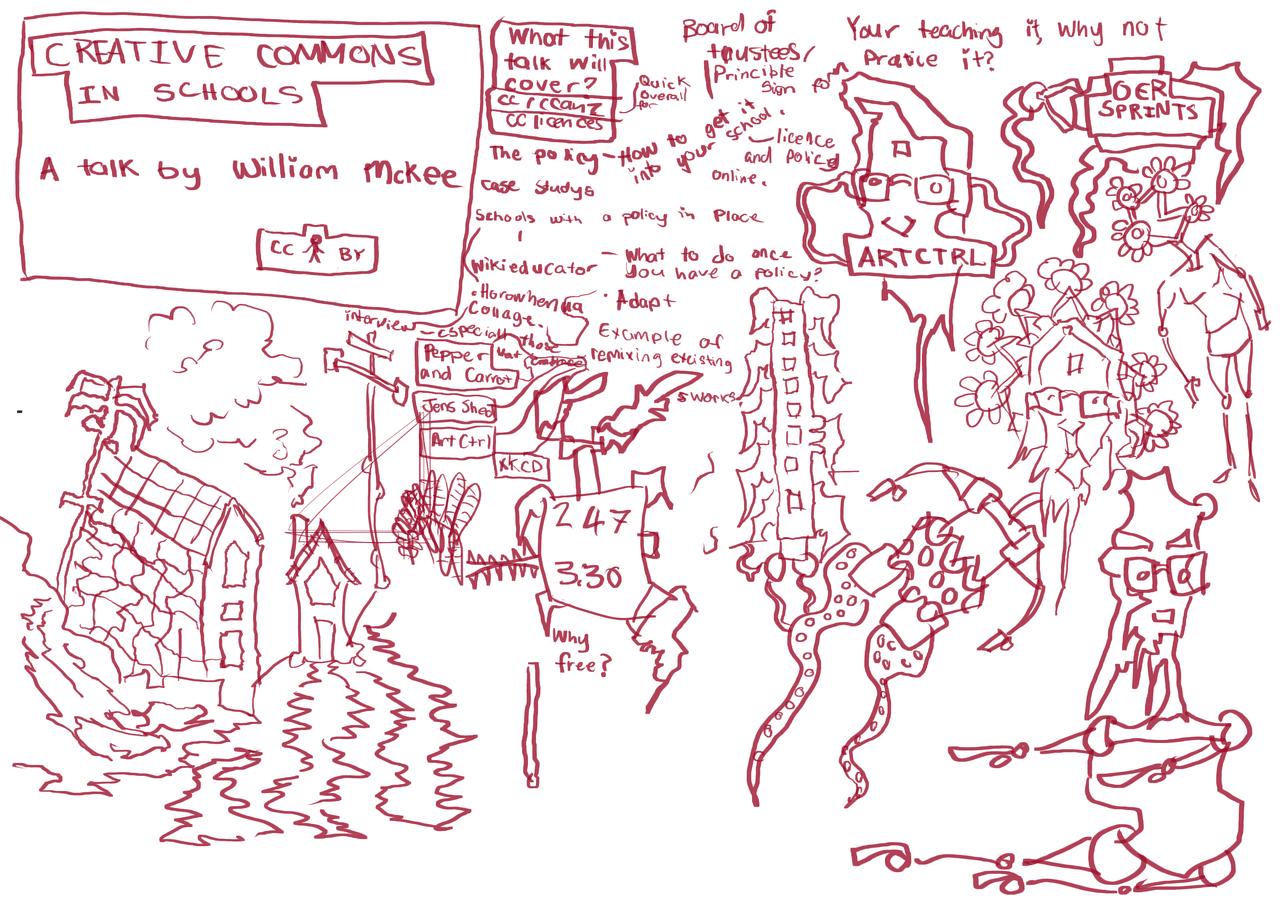 CREATIVE COMMONS
IN SCHOOLS
A talk by William McKee
CC BY
What this
talk will
cover?
CC
CC licences
Quick
Overall
for
Board of
trustees/
Princible
Sign for
The policy - How to get it
into your school.
licence
and policy
online.
case studys
Schools with a policy in Place
Wikieducator
- What to do once
you have a policy?
• Horowhenua
Collage.
• Adapt
interview - especially those
that
Pepper
and Carrot
Example of
remixing existing
works
Jens Sheol
ArtCtrl
XKCD
247
3.30
Why
free?
Your teaching it, why not
Pratice it?
OER
SPRINTS
ARTCTRL